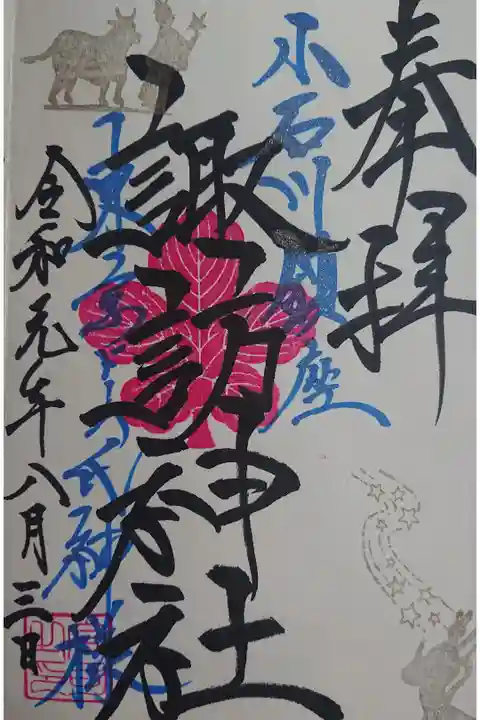 奉拝
小石川鎮座
諏訪神社
氏神様
令和元年八月三日